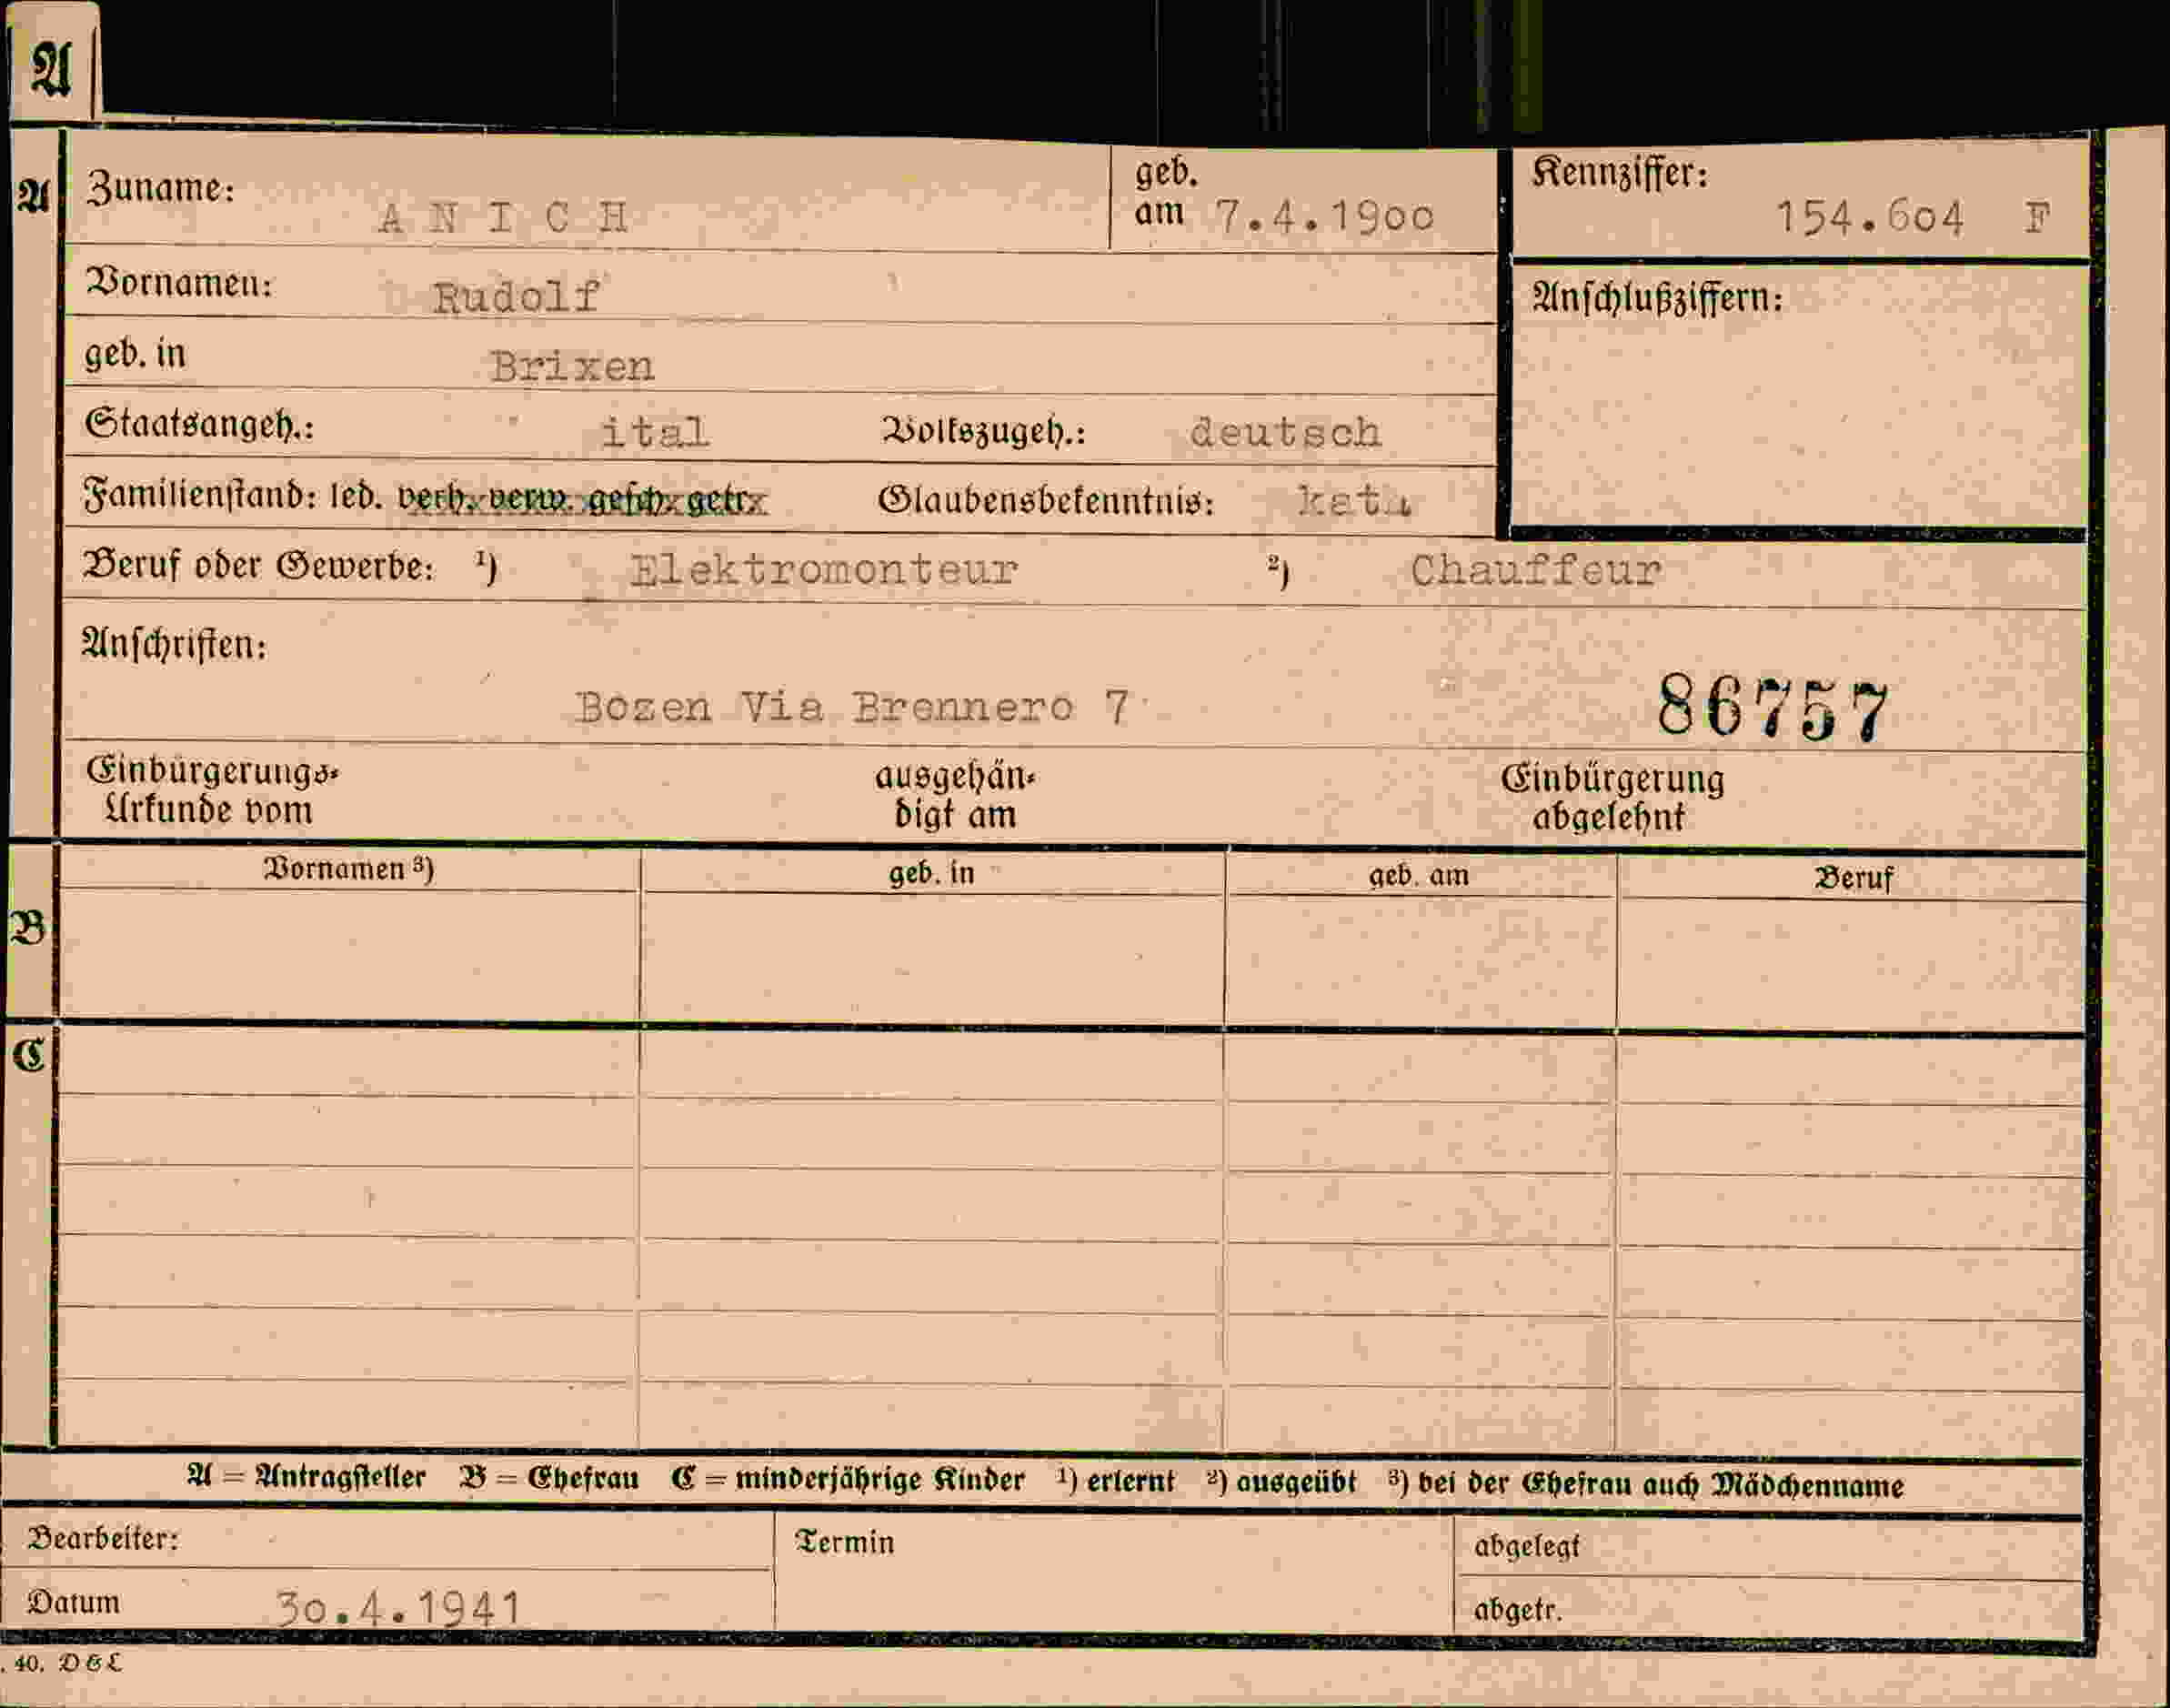 A
A
Zuname: ANICH
geb. am 7.4.1900
Kennziffer: 154.604 F
Vornamen: Rudolf
Anschlußziffern:
geb. in Brixen
Staatsangeh.: ital Volkszugeh.: deutsch
Familienstand: led. verh. verw. gesch. getr. Glaubensbekenntnis: kat.
Beruf oder Gewerbe: ¹) Elektromonteur ²) Chauffeur
Anschriften:
Bozen Via Brennero 7
86757
Einbürgerungs-
Urkunde vom
ausgehän-
digt am
Einbürgerung
abgelehnt
Vornamen ³) geb. in geb. am Beruf
B
C
A = Antragsteller B = Ehefrau C = minderjährige Kinder ¹) erlernt ²) ausgeübt ³) bei der Ehefrau auch Mädchenname
Bearbeiter: Termin abgelegt
Datum 30.4.1941 abgetr.
. 40. D & L